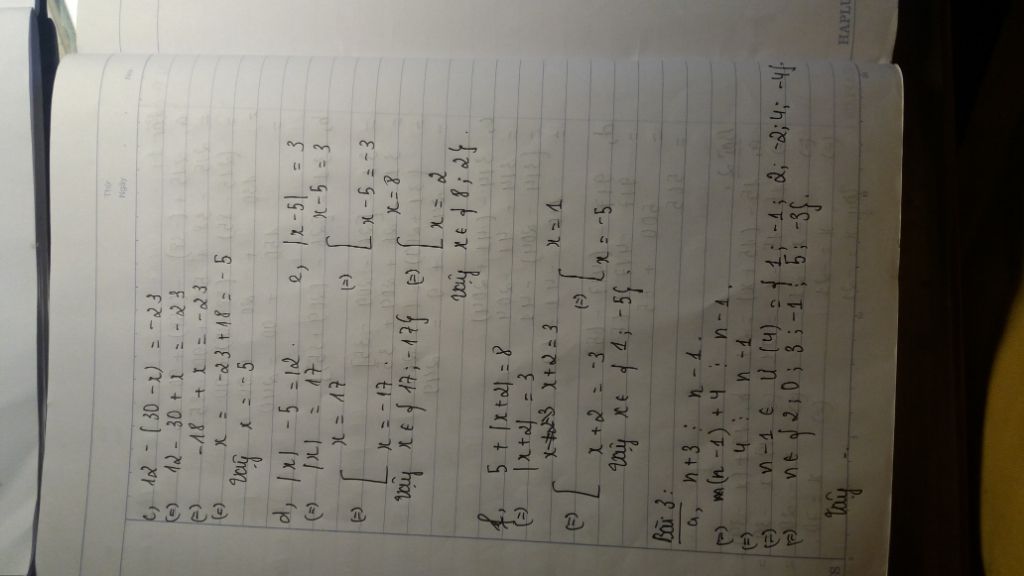 No.
Thứ
Ngày
c, 12 - (30 - x) = -23
(=) 12 - 30 + x = -23
(=) -18 + x = -23
(=) x = -23 + 18 = -5
Vậy x = -5
d, |x| - 5 = 12.
(=) |x| = 17
(=) [ x = 17
x = -17
Vậy x ∈ { 17; -17}
e, |x - 5| = 3
(=) [ x - 5 = 3
x - 5 = -3
(=) [ x = 8
x = 2
Vậy x ∈ { 8; 2}.
f, 5 + |x + 2| = 8
(=) |x + 2| = 3
(=) [ x + 2 = 3
x + 2 = -3
(=) [ x = 1
x = -5
Vậy x ∈ { 1; -5}
Bài 3:
a, n + 3 ⋮ n - 1.
(=) (n - 1) + 4 ⋮ n - 1.
(=) 4 ⋮ n - 1
(=) n - 1 ∈ Ư(4) = { 1; -1; 2; -2; 4; -4}.
(=) n ∈ { 2; 0; 3; -1; 5; -3}.
Vậy ...
8